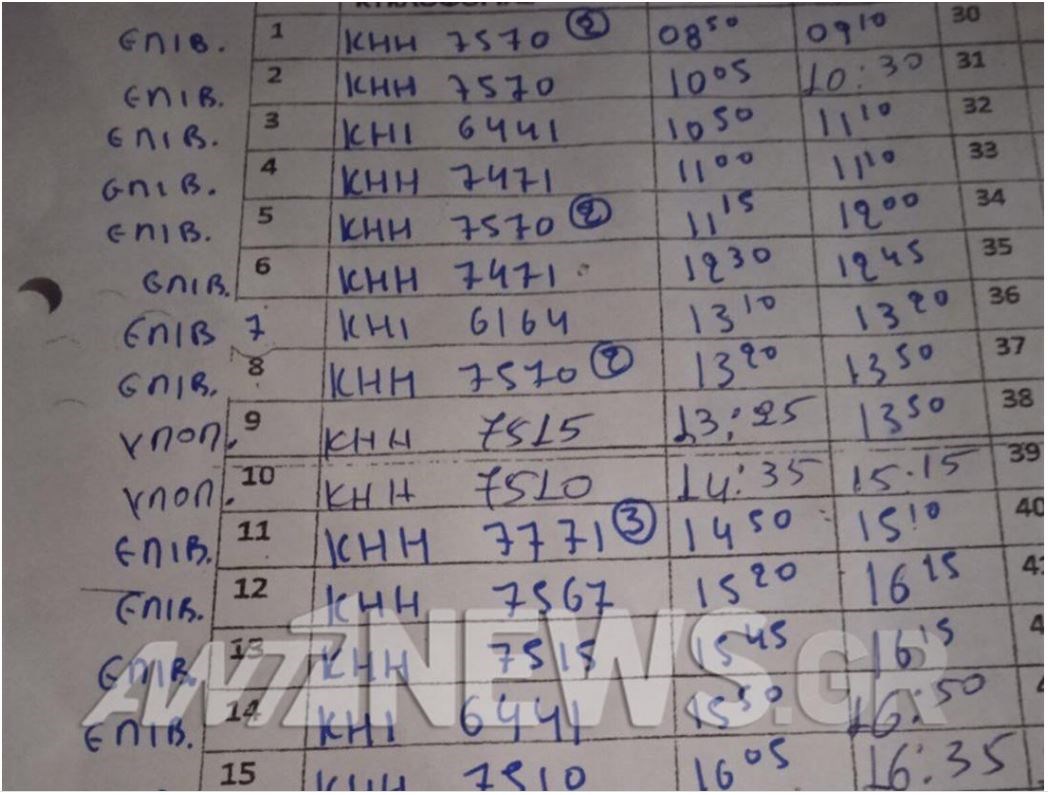 ΕΠΙΒ. 1 ΚΗΗ 7570 ② 08⁵⁰ 09¹⁰ 30
ΕΠΙΒ. 2 ΚΗΗ 7570 10⁰⁵ 10:30 31
ΕΠΙΒ. 3 ΚΗΙ 6441 10⁵⁰ 11¹⁰ 32
ΕΠΙΒ. 4 ΚΗΗ 7471 11⁰⁰ 11²⁰ 33
ΕΠΙΒ. 5 ΚΗΗ 7570 ② 11¹⁵ 12⁰⁰ 34
ΕΠΙΒ. 6 ΚΗΗ 7471 12³⁰ 12⁴⁵ 35
ΕΠΙΒ 7 ΚΗΙ 6164 13¹⁰ 13²⁰ 36
ΕΠΙΒ. 8 ΚΗΗ 7570 ② 13²⁰ 13⁵⁰ 37
ΥΠΟΠ. 9 ΚΗΗ 7515 13:25 13⁵⁰ 38
ΥΠΟΠ. 10 ΚΗΗ 7510 14:35 15.15 39
ΕΠΙΒ. 11 ΚΗΗ 7771 ③ 14⁵⁰ 15¹⁰ 40
ΕΠΙΒ. 12 ΚΗΗ 7567 15²⁰ 16¹⁵
ΕΠΙΒ. 13 ΚΗΗ 7515 15⁴⁵ 16¹⁵
ΕΠΙΒ. 14 ΚΗΙ 6441 15⁵⁰ 16:50
15 ΚΗΗ 7510 16⁰⁵ 16:35
ANT1NEWS.GR